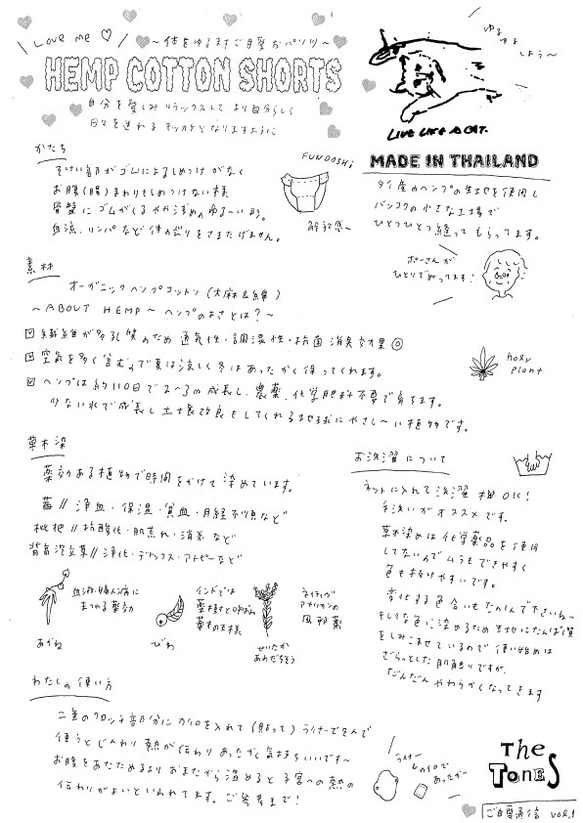 Love me ♡
〜体をゆるます ご自愛おパンツ〜
HEMP COTTON SHORTS
自分を愛しみ リラックスして より自分らしく
日々を送れる キッカケとなりますように
ゆるゆる
しよう〜
LIVE LIFE A CAT.
かたち
そけい部がゴムによるしめつけ がなく
お腹(腸)まわりもしめつけない様
骨盤に ゴムがくる やや浅めの ゆる〜い形。
血流、リンパなど 体の巡りをさまたげません。
FUNDOSHI
解放感〜
MADE IN THAILAND
タイ産のヘンプの生地を使用し
バンコクの小さな工場で
ひとつひとつ縫って もらってます。
ポーさんが
ひとりでぬってます!
素材
オーガニック ヘンプコットン (大麻&綿)
〜ABOUT HEMP〜 ヘンプのよさとは?〜
繊維が多孔質のため 通気性・調湿性・抗菌 消臭効果◎
空気を多く含むので夏は涼しく冬はあったかく保ってくれます。
ヘンプは約110日で2〜3m成長し、農薬、化学肥料不要で育ちます。
少ない水で成長し土壌改良をしてくれる地球にやさし〜い植物です。
holy
plant
草木染
薬効ある植物で時間をかけて染めています。
茜 // 浄血・保温・貧血・月経不順など
枇杷 // 抗酸化・肌荒れ・消炎など
背高泡立草 // 浄化・デトックス・アトピーなど
血流、婦人病に
まつわる薬効
あかね
インドでは
薬樹と呼ばれ
草木の王様
びわ
ネイティブ
アメリカンの
風邪薬
せいたか
あわだちそう
お洗濯について
ネットに入れて洗濯機OK!
手洗いがオススメです。
草木染めは化学薬品を使用
してないのでムラもできやすく
色も抜けやすいです。
変化する色合いもたのしんで下さいね〜
キレイな色に染めるため生地にたんぱく質
をしみこませているので使い始めは
ざらっとした肌触りですが、
だんだんやわらかくなってきます
わたしの使い方
二重のクロッチ部分に カイロを入れて(貼って)ライナーではさんで
使うと じんわり 熱が伝わり あったかく気持ちいいです〜
お腹をあたためるより おまたから温めると 子宮への熱の
伝わりがよいといわれてます。ご参考まで!
ライナー
カイロで
あったか〜
The
TONES
ご自愛通信 vol.1